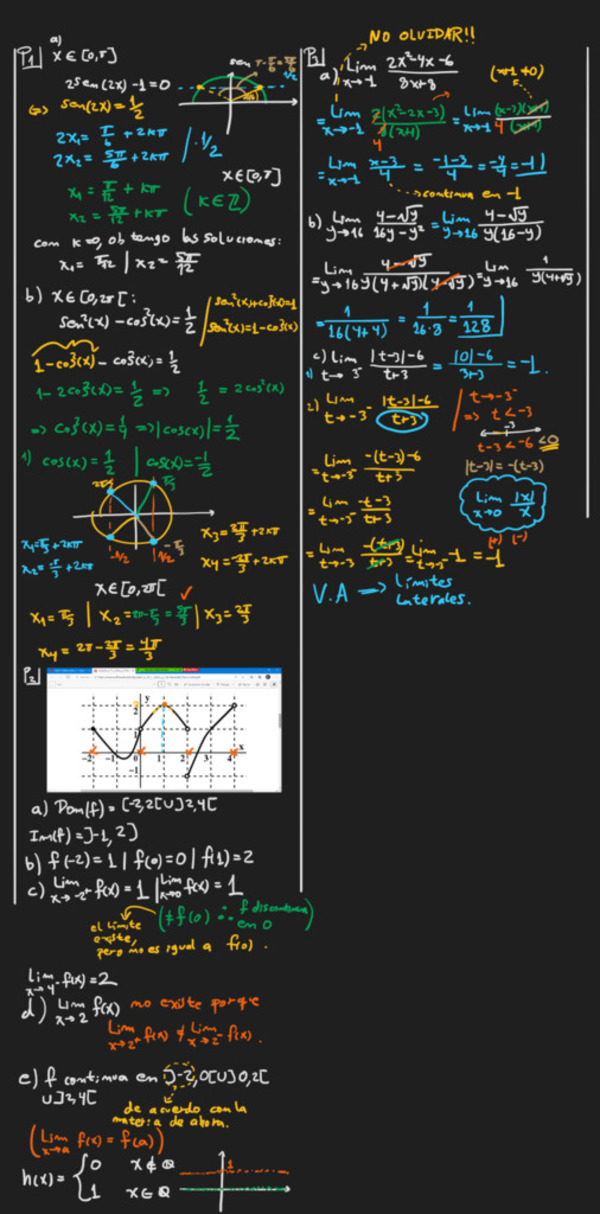 P1 a) x ∈ [0,π]
2sen(2x) - 1 = 0
⇔ sen(2x) = 1/2
sen π - π/6 = 5π/6
1/2
2x₁ = π/6 + 2kπ
2x₂ = 5π/6 + 2kπ / · 1/2
x ∈ [0,π]
x₁ = π/12 + kπ
x₂ = 5π/12 + kπ (k ∈ ℤ)
con k=0, obtengo las soluciones:
x₁ = π/12 | x₂ = 5π/12
b) x ∈ [0,2π[ :
sen²(x) - cos²(x) = 1/2 / sen²(x)+cos²(x)=1
sen²(x) = 1-cos²(x)
1-cos²(x) - cos²(x) = 1/2
1 - 2cos²(x) = 1/2 => 1/2 = 2cos²(x)
=> cos²(x) = 1/4 => |cos(x)| = 1/2
1) cos(x) = 1/2 | cos(x) = -1/2
π/3
-π/3
-1/2 1/2
x₁ = π/3 + 2kπ
x₂ = -π/3 + 2kπ
x₃ = 2π/3 + 2kπ
x₄ = -2π/3 + 2kπ
x ∈ [0,2π[ ✓
x₁ = π/3 | x₂ = 2π - π/3 = 5π/3 | x₃ = 2π/3
x₄ = 2π - 2π/3 = 4π/3
P2
y
2
1
-2 -1 0 1 2 3 4 x
-1
a) Dom(f) = [-2,2[ U ]2,4[
Im(f) = ]-1, 2]
b) f(-2) = 1 | f(0) = 0 | f(1) = 2
c) Lim x→-2⁺ f(x) = 1 | Lim x→0 f(x) = 1
(≠ f(0) ∴ f discontinua en 0)
el límite
existe,
pero no es igual a f(0).
lim x→4⁻ f(x) = 2
d) Lim x→2 f(x) no existe porque
Lim x→2⁺ f(x) ≠ Lim x→2⁻ f(x).
e) f continua en ]-2,0[ U ]0,2[
U ]2,4[
de acuerdo con la
materia de ahora.
(Lim x→a f(x) = f(a))
h(x) = { 0 x ∉ ℚ
1 x ∈ ℚ
1
NO OLVIDAR!!
P3
a) Lim x→-1 2x²-4x-6 / 8x+8
(x+1 ≠ 0)
= Lim x→-1 2(x²-2x-3) / 8(x+1) = Lim x→-1 (x-3)(x+1) / 4(x+1)
4
= Lim x→-1 x-3 / 4 = -1-3 / 4 = -4/4 = -1
continua en -1
b) Lim y→16 4-√y / 16y-y² = Lim y→16 4-√y / y(16-y)
= Lim y→16 4-√y / y(4+√y)(4-√y) = Lim y→16 1 / y(4+√y)
= 1 / 16(4+4) = 1 / 16·8 = 1/128
c) Lim
1) t→3⁻ |t-3|-6 / t+3 = |0|-6 / 3+3 = -1.
2) Lim t→-3⁻ |t-3|-6 / t+3
/ t→-3⁻
=> t < -3
-3
t-3 < -6 < 0
|t-3| = -(t-3)
= Lim t→-3⁻ -(t-3)-6 / t+3
= Lim t→-3⁻ -t-3 / t+3
Lim x→0 |x| / x
(+) (-)
= Lim t→-3 -(t+3) / t+3 = Lim t→-3⁻ -1 = -1
V.A => Límites
laterales.